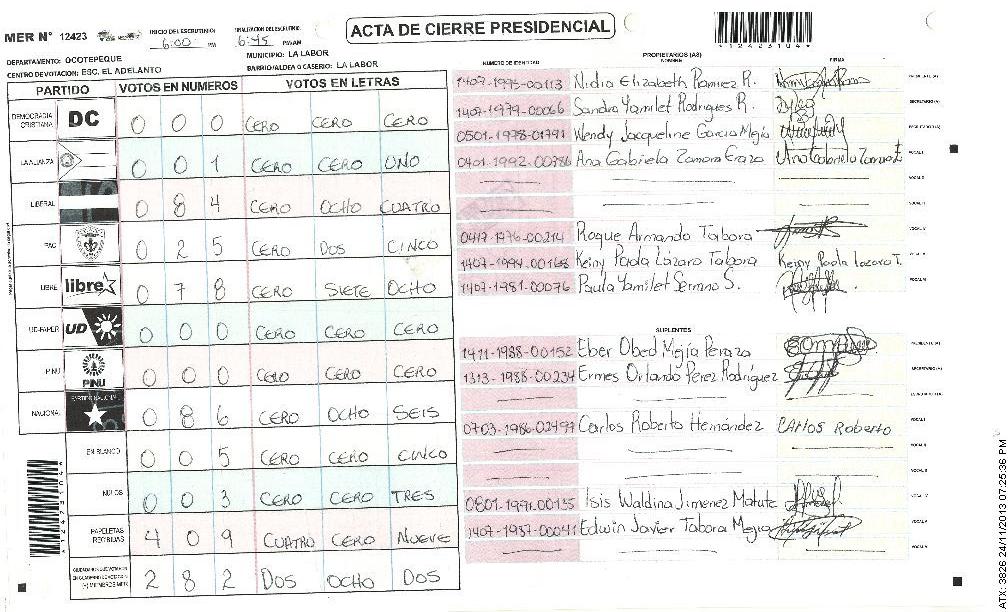 MER Nº 12423
INICIO DEL ESCRUTINIO: 6:00 PM
FINALIZACION DEL ESCRUTINIO: 6:45 PM/AM
ACTA DE CIERRE PRESIDENCIAL
*12423104*
DEPARTAMENTO: OCOTEPEQUE
MUNICIPIO: LA LABOR
CENTRO DE VOTACION: ESC. EL ADELANTO
BARRIO/ALDEA O CASERIO: LA LABOR
PARTIDO VOTOS EN NUMEROS VOTOS EN LETRAS
DEMOCRACIA CRISTIANA DC 0 0 0 CERO CERO CERO
LA ALIANZA 0 0 1 CERO CERO UNO
LIBERAL 0 8 4 CERO OCHO CUATRO
PAC 0 2 5 CERO DOS CINCO
LIBRE libre 0 7 8 CERO SIETE OCHO
UD-FAPER UD 0 0 0 CERO CERO CERO
PINU PINU 0 0 0 CERO CERO CERO
NACIONAL PARTIDO NACIONAL 0 8 6 CERO OCHO SEIS
EN BLANCO 0 0 5 CERO CERO CINCO
NULOS 0 0 3 CERO CERO TRES
PAPELETAS RECIBIDAS 4 0 9 CUATRO CERO NUEVE
2 8 2 DOS OCHO DOS
PROPIETARIOS (AS)
NUMERO DE IDENTIDAD NOMBRE FIRMA
1407-1995-00113 Nidia Elizabeth Ramirez R. PRESIDENTE (A)
1407-1979-00066 Sandra Yamilet Rodrigues R. SECRETARIO (A)
0501-1978-01791 Wendy Jacqueline Garcia Mejia ESCRUTADOR (A)
0401-1992-00786 Ana Gabriela Zamora Erazo Ana Gabriela Zamora E VOCAL I
VOCAL II
VOCAL III
0417-1976-00214 Roque Armando Tabora VOCAL IV
1407-1994-00168 Keiny Paola Lázaro Tabora Keiny Paola Lazaro T. VOCAL V
1407-1981-00076 Paula Yamilet Serrano S. VOCAL VI
SUPLENTES
1411-1988-00152 Eber Obed Mejía Peraza PRESIDENTE (A)
1313-1988-00234 Ermes Orlando Perez Rodríguez SECRETARIO (A)
ESCRUTADOR (A)
0703-1986-02497 Carlos Roberto Hernández CARLOS ROBERTO VOCAL I
VOCAL II
VOCAL III
0801-1991-00135 Isis Waldina Jimenez Matute VOCAL IV
1407-1987-00041 Edwin Javier Tabora Mejia VOCAL V
VOCAL VI
*12423104*
ATX: 3826 24/11/2013 07:25:36 PM